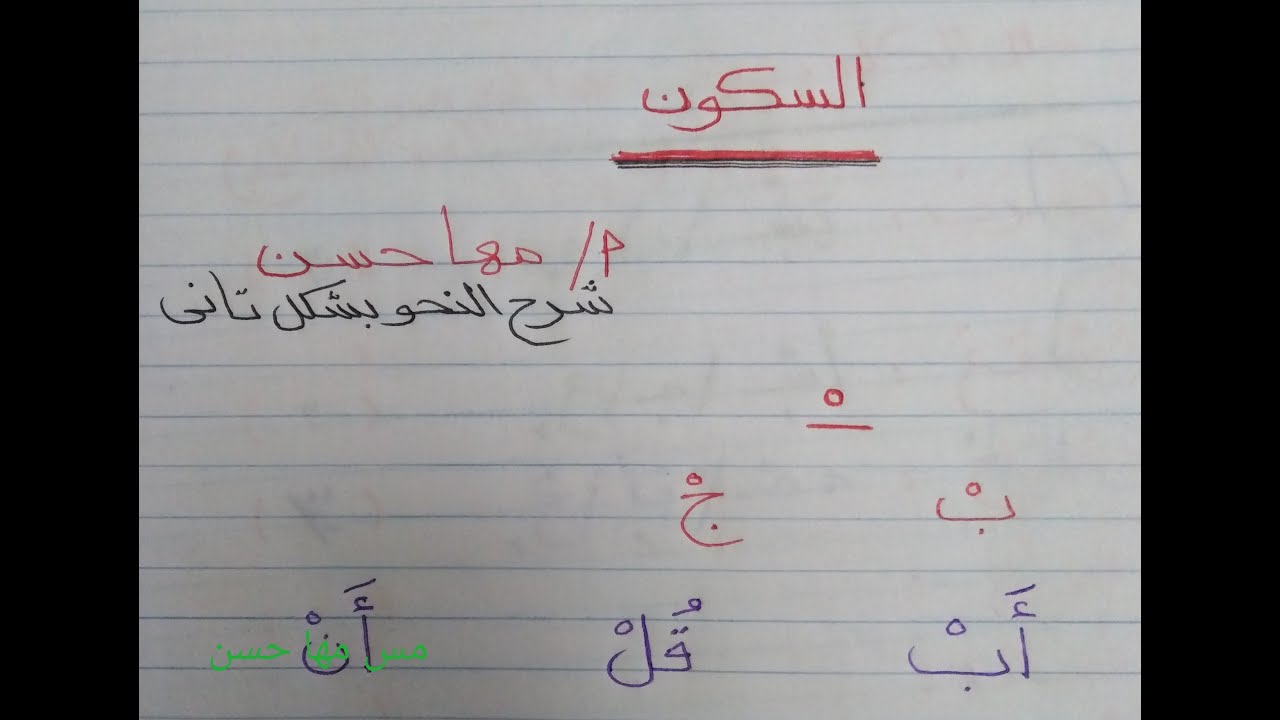 السكون
م/ مها حسن
شرح النحو بشكل تانى
ْ
بْ جْ
أَبْ قُلْ أَنْ
مس مها حسن